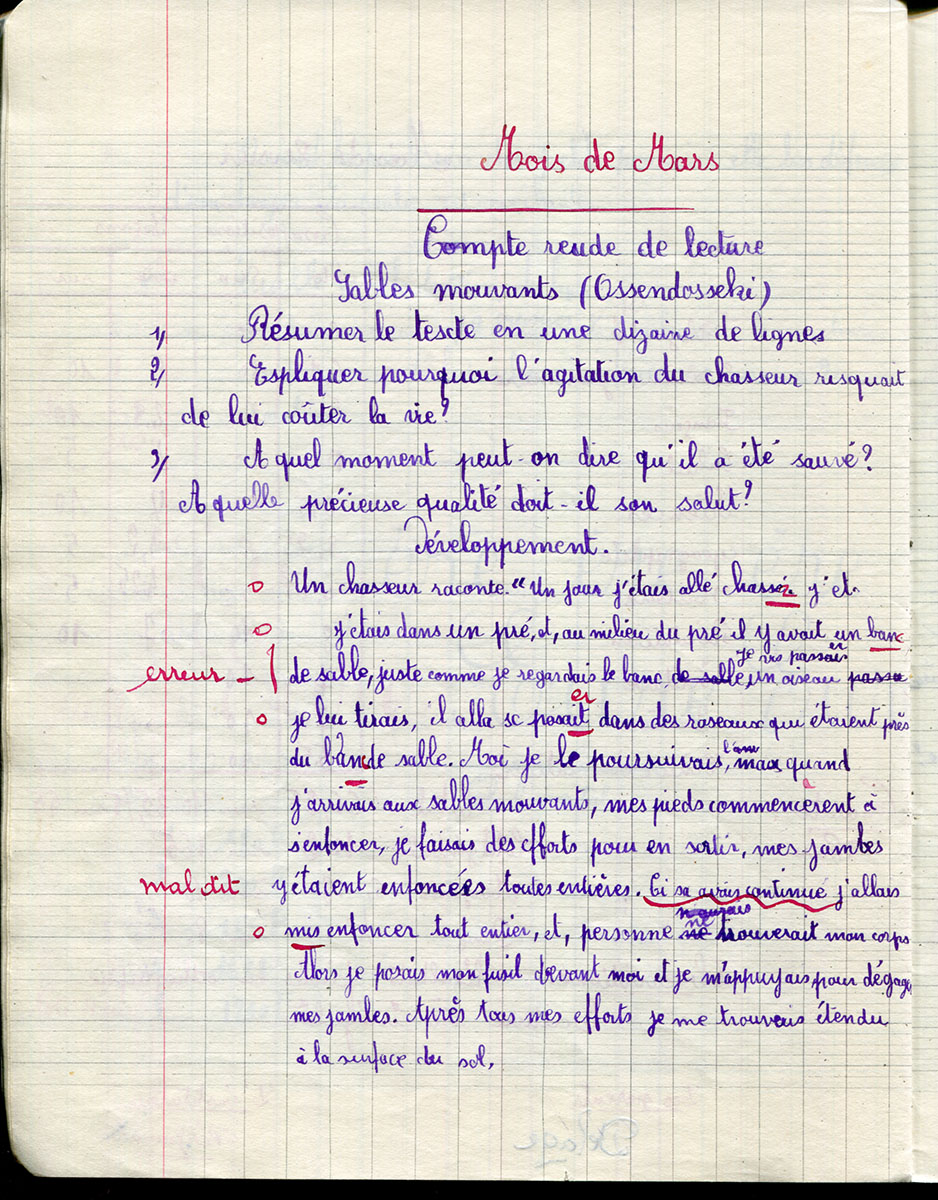 Mois de Mars
Compte rendu de lecture
Sables mouvants (Ossendosski)
1, Résumer le texte en une dizaine de lignes
2, Expliquer pourquoi l'agitation du chasseur risquait
de lui coûter la vie?
3, A quel moment peut-on dire qu'il a été sauvé?
A quelle précieuse qualité doit-il son salut?
Développement.
o Un chasseur raconte. "Un jour j'étais allé chasser y'et
o y'étais dans un pré, et, au milieu du pré il y avait un banc
je vis passer
erreur - de sable, juste comme je regardais le banc, de sable, un oiseau passa
er
o je lui tirais, il alla se posait dans des roseaux qui étaient près
du bande sable. Moi je le poursuivais, mais quand
j'arrivais aux sables mouvants, mes pieds commencèrent à
s'enfoncer, je faisais des efforts pour en sortir, mes jambes
mal dit y étaient enfoncées toutes entières. Ci sa avais continué j'allais
n'aurais
o mis enfoncer tout entier, et, personne ne trouverait mon corps
Alors je posais mon fusil devant moi et je m'appuyais pour dégage
mes jambes. Après tous mes efforts je me trouvais étendu
à la surface du sol,